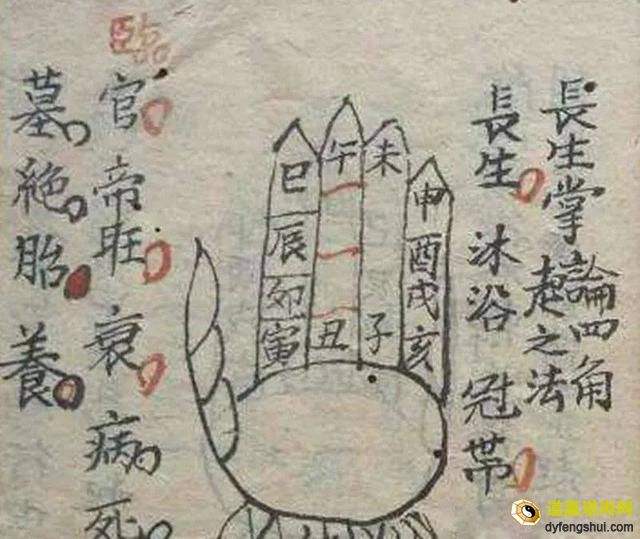 長生掌論四角
起之法
長生 沐浴 冠帶
臨
官 帝旺 衰 病 死
墓 絕 胎 養
巳 午 未 申
辰 酉
卯 戌
寅 丑 子 亥
道易港商网
dyfengshui.com